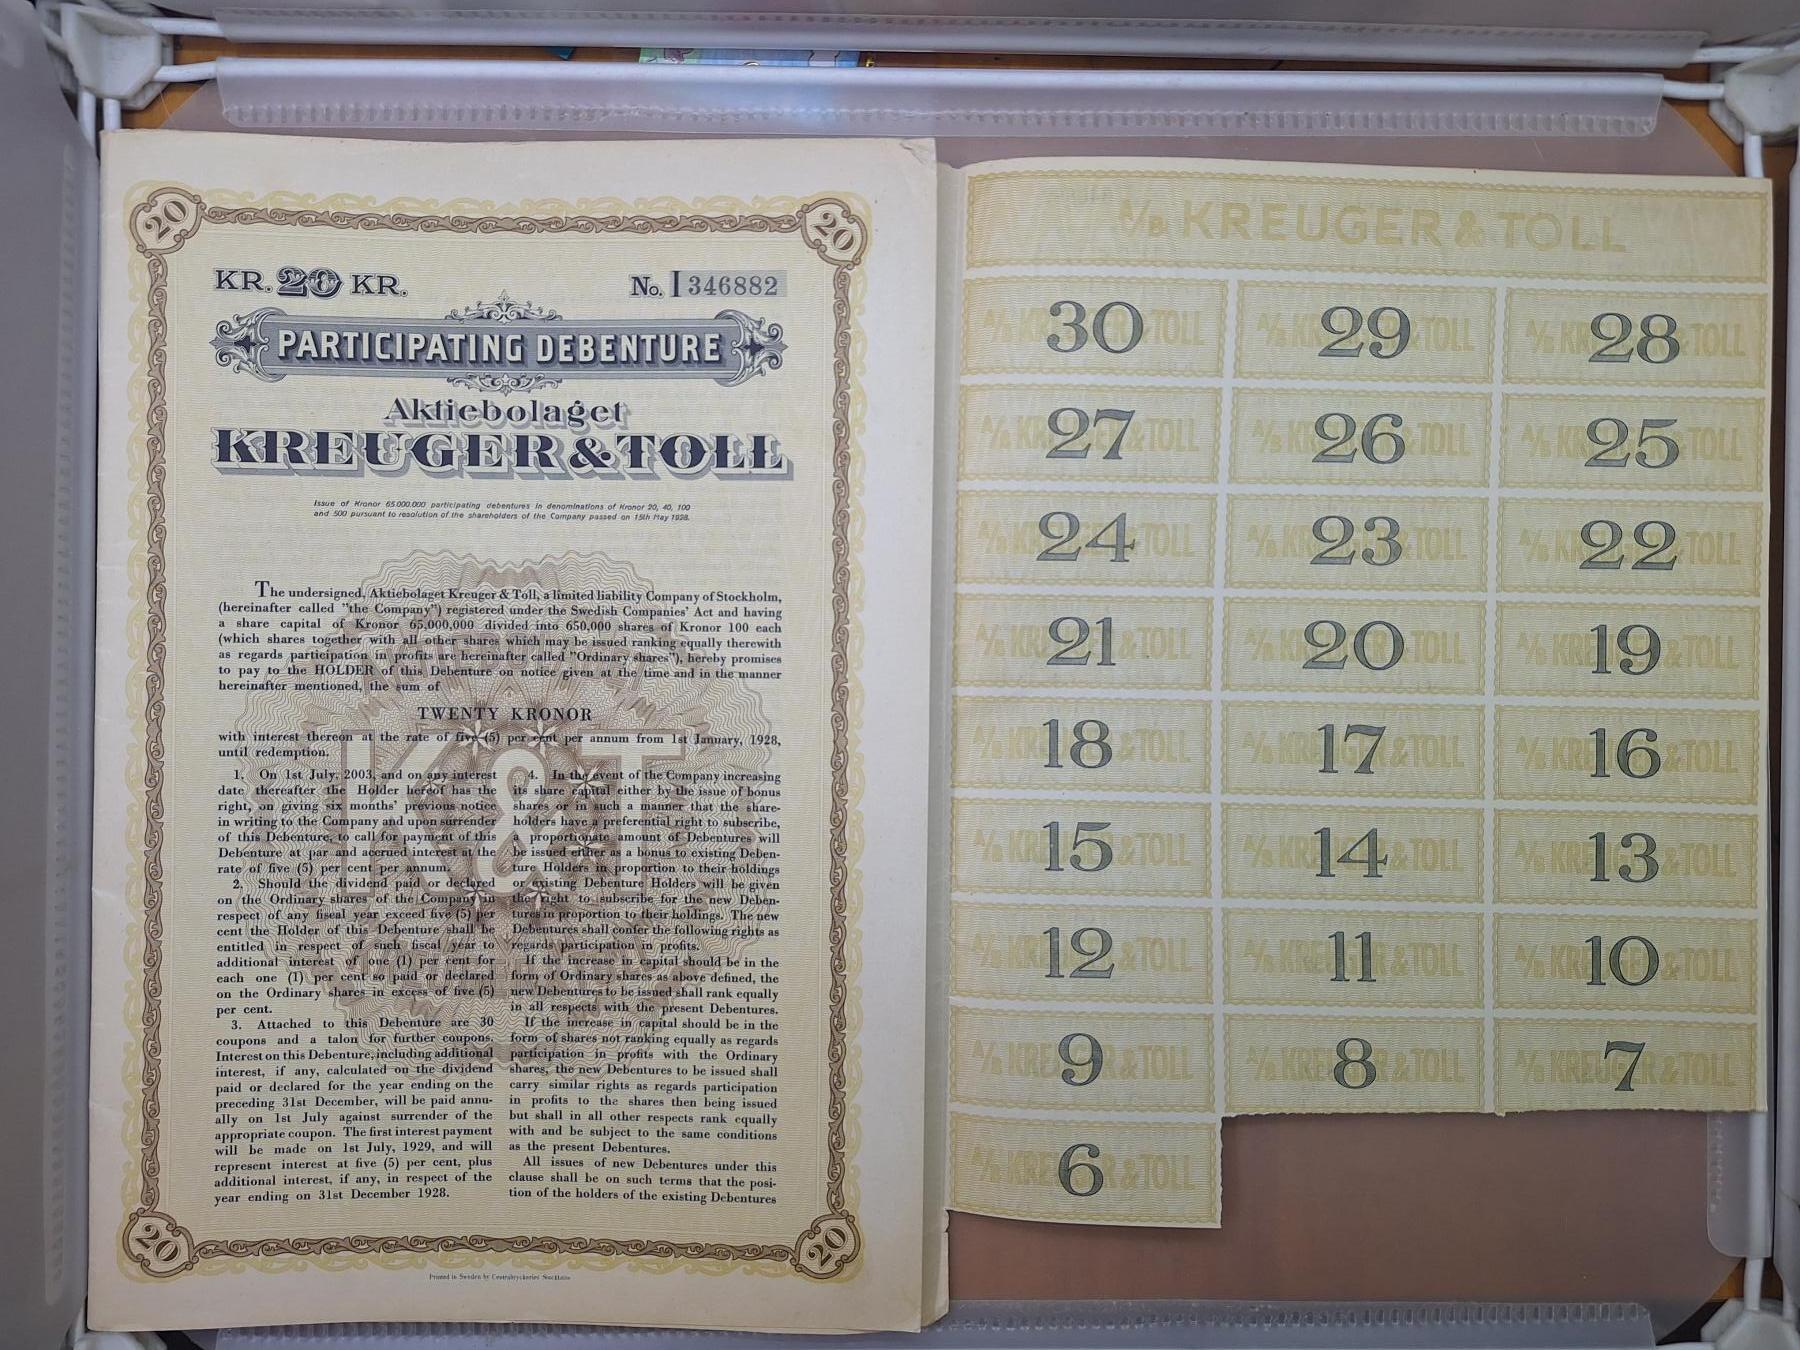 20
20
KR. 20 KR.
No. I 346882
PARTICIPATING DEBENTURE
Aktiebolaget
KREUGER & TOLL
Issue of Kronor 65.000.000 participating debentures in denominations of Kronor 20, 40, 100
and 500 pursuant to resolution of the shareholders of the Company passed on 15th May 1928.
The undersigned, Aktiebolaget Kreuger & Toll, a limited liability Company of Stockholm,
(hereinafter called "the Company") registered under the Swedish Companies' Act and having
a share capital of Kronor 65,000,000 divided into 650,000 shares of Kronor 100 each
(which shares together with all other shares which may be issued ranking equally therewith
as regards participation in profits are hereinafter called "Ordinary shares"), hereby promises
to pay to the HOLDER of this Debenture on notice given at the time and in the manner
hereinafter mentioned, the sum of
TWENTY KRONOR
with interest thereon at the rate of five (5) per cent per annum from 1st January, 1928,
until redemption.
1. On 1st July, 2003, and on any interest
date thereafter the Holder hereof has the
right, on giving six months' previous notice
in writing to the Company and upon surrender
of this Debenture, to call for payment of this
Debenture at par and accrued interest at the
rate of five (5) per cent per annum.
2. Should the dividend paid or declared
on the Ordinary shares of the Company in
respect of any fiscal year exceed five (5) per
cent the Holder of this Debenture shall be
entitled in respect of such fiscal year to
additional interest of one (1) per cent for
each one (1) per cent so paid or declared
on the Ordinary shares in excess of five (5)
per cent.
3. Attached to this Debenture are 30
coupons and a talon for further coupons.
Interest on this Debenture, including additional
interest, if any, calculated on the dividend
paid or declared for the year ending on the
preceding 31st December, will be paid annu-
ally on 1st July against surrender of the
appropriate coupon. The first interest payment
will be made on 1st July, 1929, and will
represent interest at five (5) per cent, plus
additional interest, if any, in respect of the
year ending on 31st December 1928.
4. In the event of the Company increasing
its share capital either by the issue of bonus
shares or in such a manner that the share-
holders have a preferential right to subscribe,
a proportionate amount of Debentures will
be issued either as a bonus to existing Deben-
ture Holders in proportion to their holdings
or existing Debenture Holders will be given
the right to subscribe for the new Deben-
tures in proportion to their holdings. The new
Debentures shall confer the following rights as
regards participation in profits.
If the increase in capital should be in the
form of Ordinary shares as above defined, the
new Debentures to be issued shall rank equally
in all respects with the present Debentures.
If the increase in capital should be in the
form of shares not ranking equally as regards
participation in profits with the Ordinary
shares, the new Debentures to be issued shall
carry similar rights as regards participation
in profits to the shares then being issued
but shall in all other respects rank equally
with and be subject to the same conditions
as the present Debentures.
All issues of new Debentures under this
clause shall be on such terms that the posi-
tion of the holders of the existing Debentures
K&T
20
20
Printed in Sweden by Centraltryckeriet Stockholm
A/B KREUGER & TOLL
A/B KREUGER & TOLL 30
A/B KREUGER & TOLL 29
A/B KREUGER & TOLL 28
A/B KREUGER & TOLL 27
A/B KREUGER & TOLL 26
A/B KREUGER & TOLL 25
A/B KREUGER & TOLL 24
A/B KREUGER & TOLL 23
A/B KREUGER & TOLL 22
A/B KREUGER & TOLL 21
A/B KREUGER & TOLL 20
A/B KREUGER & TOLL 19
A/B KREUGER & TOLL 18
A/B KREUGER & TOLL 17
A/B KREUGER & TOLL 16
A/B KREUGER & TOLL 15
A/B KREUGER & TOLL 14
A/B KREUGER & TOLL 13
A/B KREUGER & TOLL 12
A/B KREUGER & TOLL 11
A/B KREUGER & TOLL 10
A/B KREUGER & TOLL 9
A/B KREUGER & TOLL 8
A/B KREUGER & TOLL 7
A/B KREUGER & TOLL 6